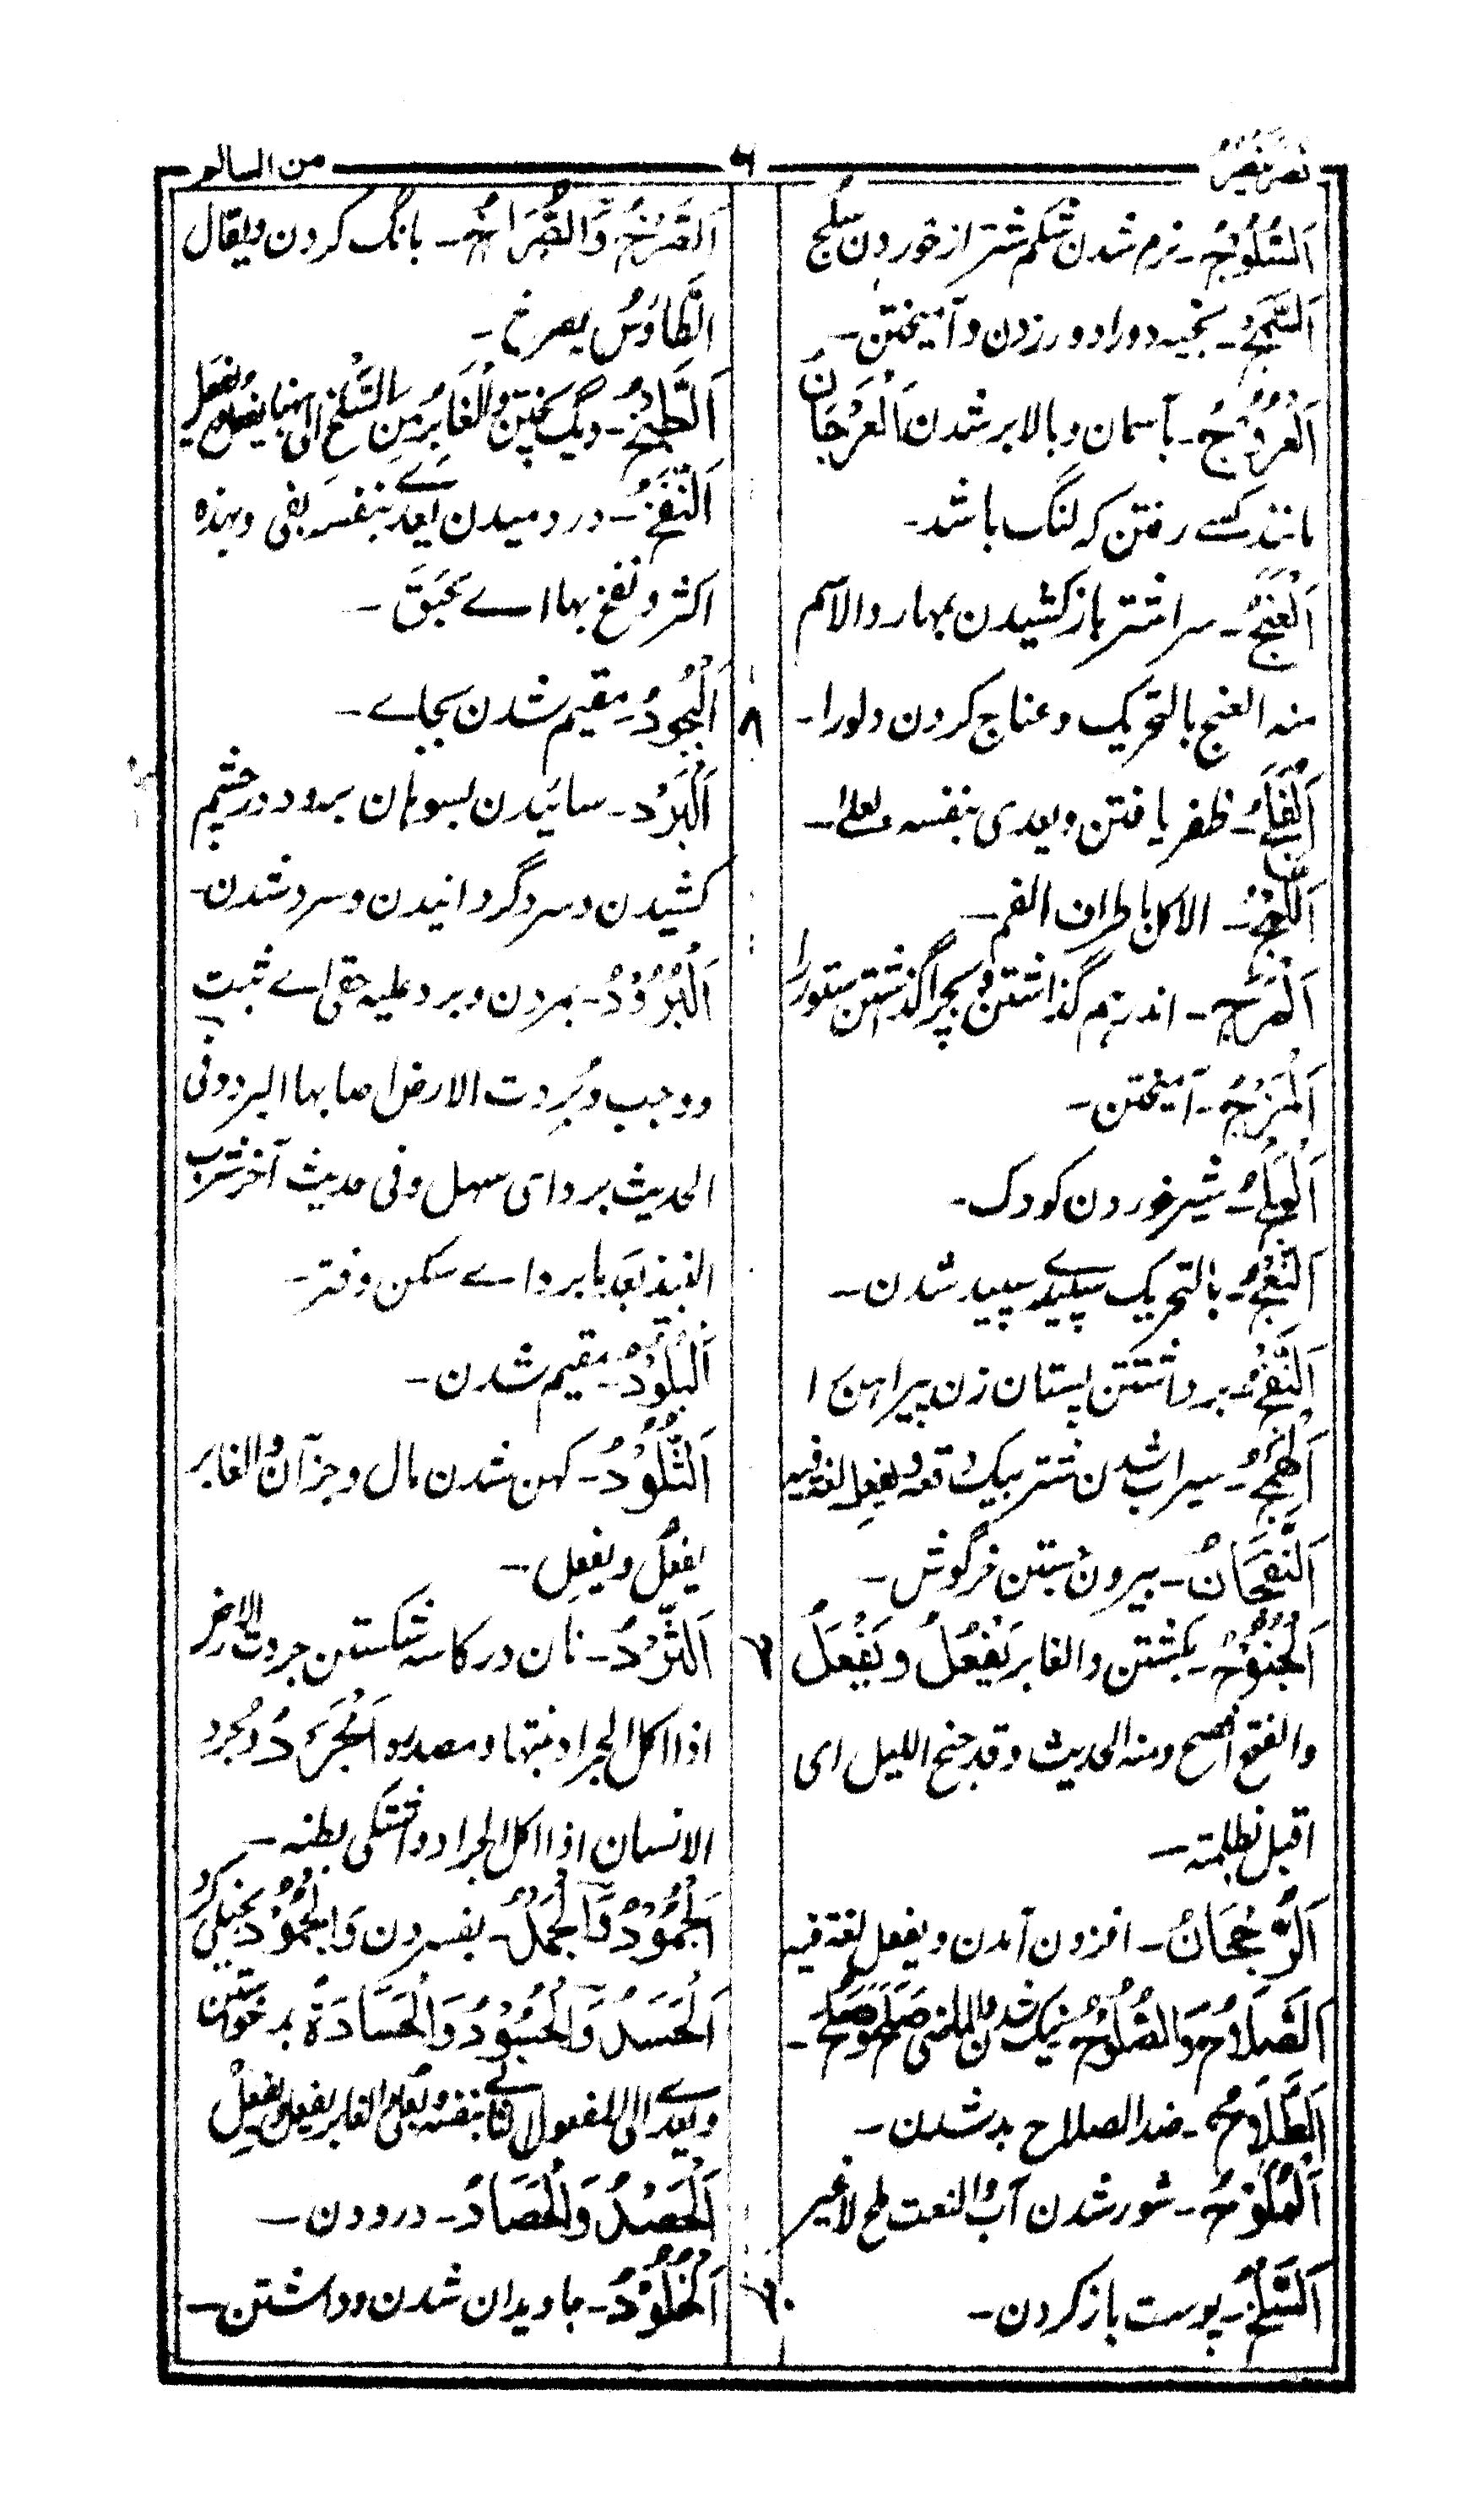 نصر ینصر
٦
من السالم
اَلسُّلُوْجُ۔ نرم شدن شکم شتر از خوردن سلج
بخیه دورادور زدن و آمیختن۔
اَلْعُرُوْجُ۔ بآسمان و بالا بر شدن اَلْعَرَجَانُ
مانند کسے رفتن که لنگ باشد۔
اَلْعَنْجُ۔ سر اشتر باز کشیدن بمهار والاسم
منه العنج بالتحریک و عناج کردن دلورا۔
اَلْفَلْجُ۔ ظفر یافتن ویعدی بنفسه وبعلی۔
الاکل باطراف الفم۔
اَلْمَرْجُ۔ اندرهم گذاشتن و بچرا گذاشتن ستور را
اَلْمَزْجُ۔ آمیختن۔
اَلْمَلْجُ۔ شیر خوردن کودک۔
بالتحریک سپید سپید شدن۔
اَلنَّفْجُ۔ برداشتن پستان زن پیراهن را
سیراب شدن شتر بیک دفعه ویفعل لغة فیه
اَلنَّفَجَانُ۔ بیرون جستن خرگوش۔
اَلْجُنُوْحُ۔ بگشتن والغابر یَفْعُلُ و یَفْعَلُ
والفتح افصح ومنه الحدیث وقد جنح اللیل ای
اقبل بظلمته۔
اَلرُّجْحَانُ۔ افزون آمدن ویفعل لغة فیه
اَلصَّلَاحُ وَالصُّلُوْحُ۔ نیک شدن والماضی صَلَحَ وصَلُحَ۔
اَلطَّلَاحُ۔ ضد الصلاح بد شدن۔
اَلْمُلُوْحُ۔ شور شدن آب والنعت ملح لاغیر
اَلسَّلْخُ۔ پوست باز کردن۔
اَلصَّرْخُ وَالصُّرَاخُ۔ بانگ کردن ویقال
اَلطَّاؤُسُ یصرخ۔
اَلطَّبْخُ۔ دیگ پختن والغابر من السلخ الی ههنا یفعل ویفعل
اَلنَّفْخُ۔ دردمیدن یعدی بنفسه بفی وبهذه
اکثر ونفخ بها اے حَبَقَ۔
اَلْبُجُوْدُ۔ مقیم شدن بجاے۔
۸
اَلْبَرْدُ۔ سائیدن بسوهان برود در چشم
کشیدن و سرد گردانیدن و سرد شدن۔
اَلْبُرُوْدُ۔ بمردن وبرد علیه حقی اے ثبت
ووجب وبُرِدت الارض اصابها البرد وفی
الحدیث برد ای سهل وفی حدیث آخر شرب
النبیذ بعد ما برد اے سکن وفتر۔
اَلْبُلُوْدُ۔ مقیم شدن۔
اَلتُّلُوْدُ۔ کهن شدن مال و جز آن والغابر
یفعُل ویفعِل۔
اَلثَّرْدُ۔ نان در کاسه شکستن جردت الارض
٦
اذا اکل الجراد نبتها ومصدره اَلْجَرَدُ وجُرِد
الانسان اذا اکل الجراد واشتکی بطنه۔
اَلْجُمُوْدُ وَالْجَمْدُ۔ بفسردن وَالْجُمُوْدُ بخیلی کرد
اَلْحَسَدُ وَالْحُسُوْدُ وَالْحَسَادَةُ بد خواستن
ویعدی الی المفعول الثانی بنفسه وبعلی والغابر یفعُل ویفعِل
اَلْحَصْدُ وَالْحَصَادُ۔ درودن۔
اَلْخُلُوْدُ۔ جاویدان شدن وداشتن۔
٦۰